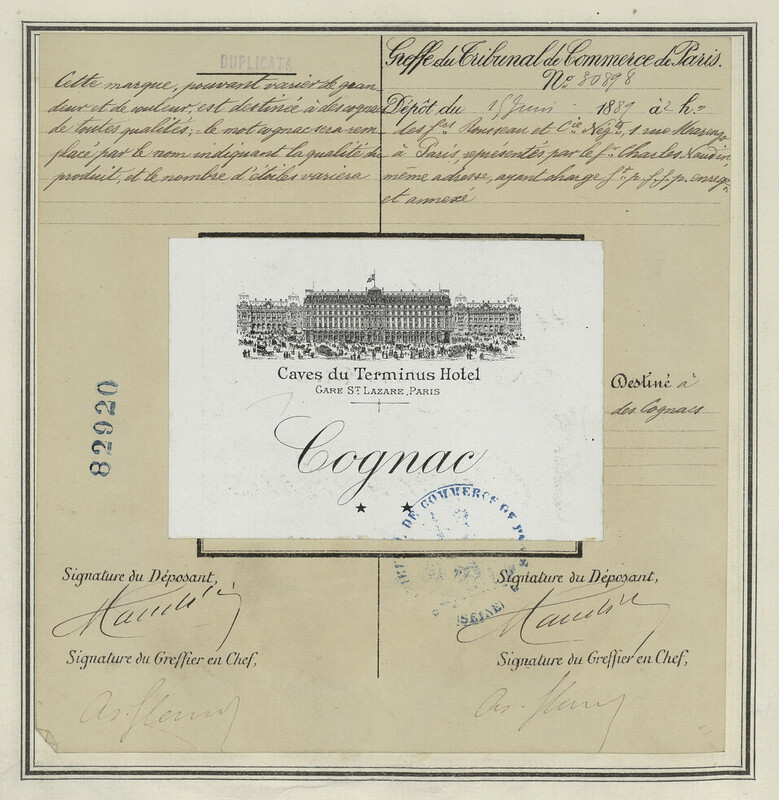 DUPLICATA
Cette marque, pouvant varier de gran-
deur et de couleur, est destinée à des
de toutes qualités; le mot cognac sera rem-
placé par le nom indiquant la qualité du
produit, et le nombre d'étoiles variera
Greffe du Tribunal de Commerce de Paris.
No. 30898
Dépôt du 15 Juin 1889 à 2 h.
des Srs Rousseau et Cie Negts, 1 rue
à Paris, représentés par le Sr Charles Naudin
même adresse, ayant charge enregé
et annexé
82920
Caves du Terminus Hotel
GARE ST. LAZARE, PARIS
Cognac
Destiné à
des Cognacs
DE COMMERCE DE
(SEINE)
Signature du Déposant,
Naudin
Signature du Greffier en Chef,
Signature du Déposant,
Naudin
Signature du Greffier en Chef,